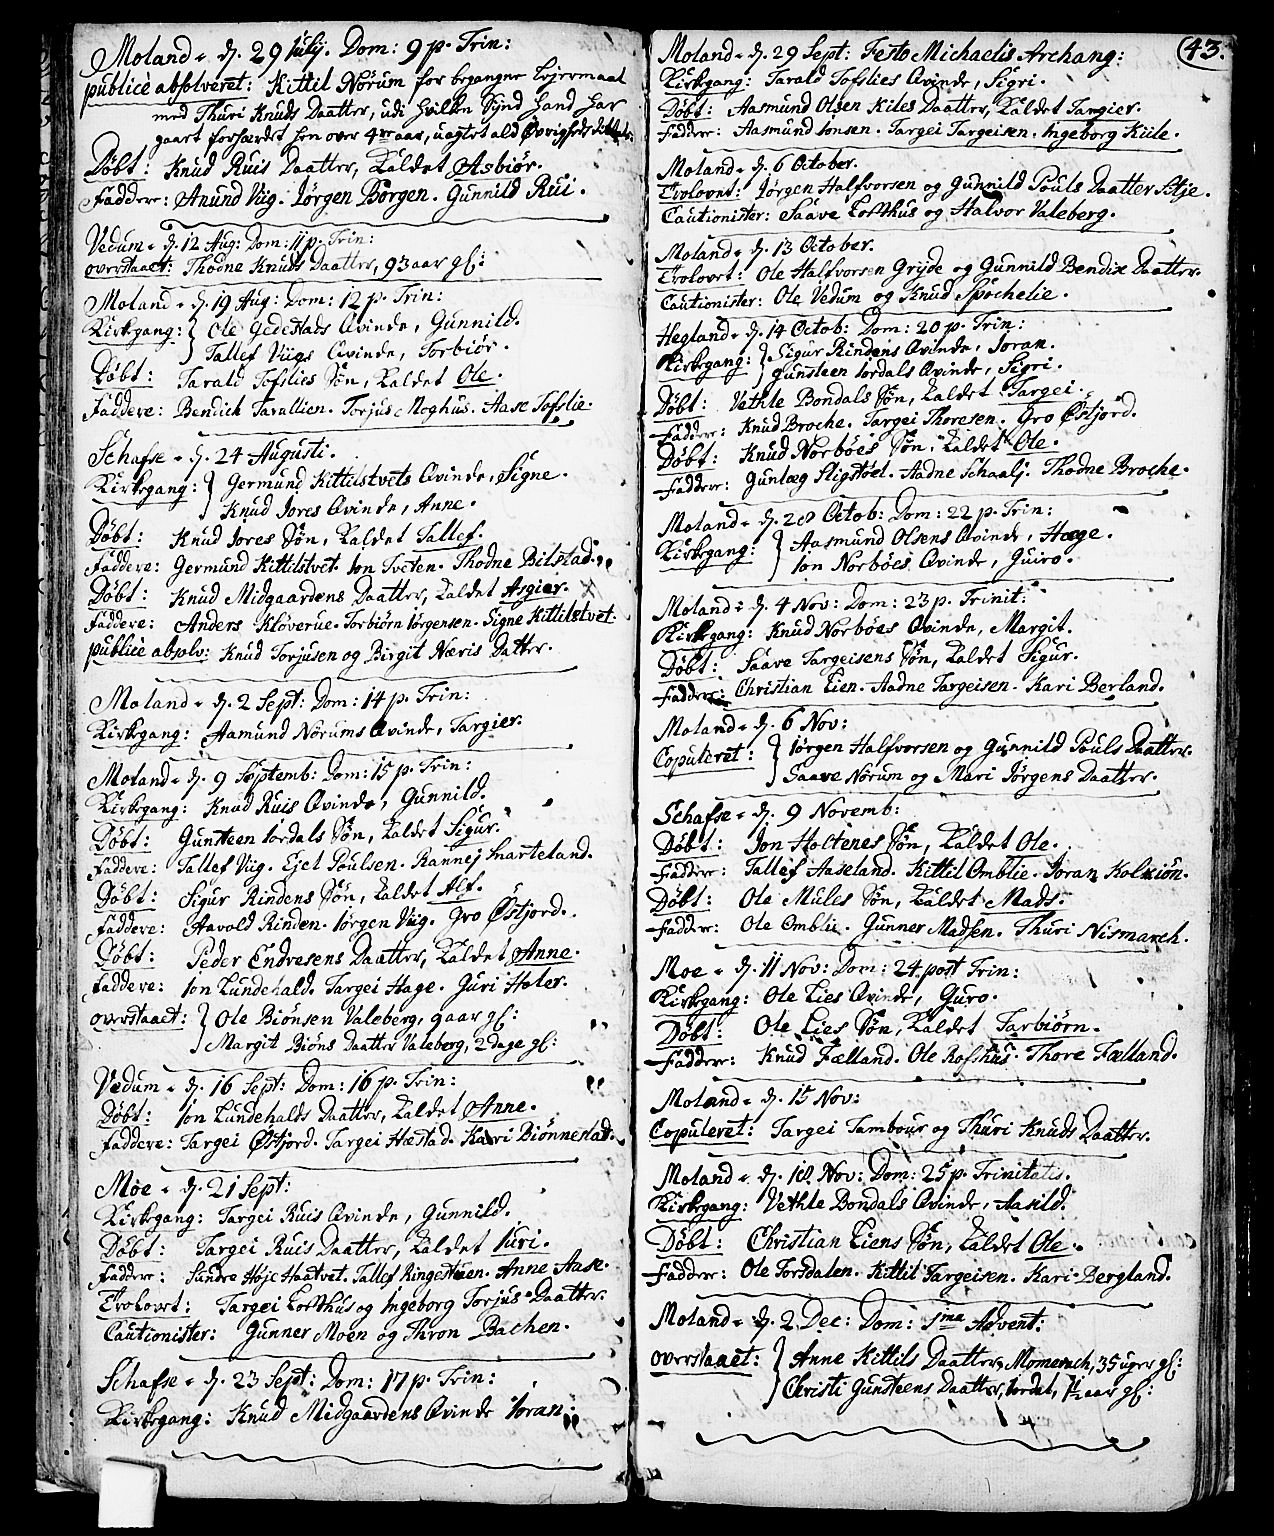 Moland d. 29 july. Dom: 9 p. Trin:
publice absolveret: Kittil Nórum for begangne Leiermaal
med Thuri Knuds Daatter, udi hvilken Synd hand har
gaaet forhærdet hen over 4re aar, uagtet ald Øvrigheds
Dóbt: Knud Ruis Daatter, kaldet Asbiór.
Faddere: Anund Viig. Jórgen Bórgen. Gunnild Rui.
Vedum d. 12 Aug: Dom: 11 p. Trin:
overstaaet: Thodne Knuds Daatter, 93 aar gl:
Moland d. 19 Aug: Dom: 12 p. Trin:
Kirkegang: Ole Gedestads Qvinde, Gunnild.
Tallef Viigs Qvinde, Torbiór.
Dóbt: Tarald Tofslies Són, kaldet Ole.
Faddere: Bendich Taraldlien. Torjus Moghus. Aase Tofslie.
Schafse d. 24 Augusti.
Kirkegang: Germund Kittilstvets Qvinde, Signe.
Knud Jores Qvinde, Anne.
Dóbt: Knud Jores Són, kaldet Tallef.
Faddere: Germund Kittilstvet. Jon Tveten. Thodne Bilstad.
Dóbt: Knud Midgaardens Daatter, kaldet Asgier.
Faddere: Anders Klóverue. Torbiórn Jórgensen. Signe Kittilstvet.
publice absolv: Knud Torjusen og Birgit Næris Datter.
Moland d. 2 Sept: Dom: 14 p. Trin:
Kirkegang: Aamund Nórums Qvinde, Targier.
Moland d. 9 Septemb: Dom: 15 p. Trin:
Kirkegang: Knud Ruis Qvinde, Gunnild.
Dóbt: Gunsteen Jordals Són, kaldet Sigur.
Faddere: Tallef Viig. Ejel Poulsen. Rannej Snarteland.
Dóbt: Sigur Rindens Són, kaldet Alf.
Faddere: Havold Rinden. Jórgen Viig. Gro Østjord.
Dóbt: Peder Endresens Daatter, kaldet Anne.
Faddere: Jon Lundehald. Targei Hage. Guri Holer.
overstaaet: Ole Biónsen Valeberg, 9 aar gl:
Margit Bións Daatter Valeberg, 2 dage gl:
Vedum d. 16 Sept: Dom: 16 p. Trin:
Dóbt: Jon Lundehalds Daatter, kaldet Anne.
Faddere: Targei Østjord. Targei Hæstad. Kari Biónnestad.
Moe d. 21 Sept:
Kirkegang: Targei Ruis Qvinde, Gunnild.
Dóbt: Targei Ruis Daatter, kaldet Juri.
Faddere: Sundre Hóje Haatvet. Tallef Ringestueen. Anne Aase.
Trolovet: Targei Lofthus og Ingeborg Torjus Daatter.
Cautionister: Gunner Moen og Thron Bachen.
Schafse d. 23 Sept: Dom: 17 p. Trin:
Kirkegang: Knud Midgaardens Qvinde Joran.
43.
Moland d. 29 Sept: Festo Michaelis Archang:
Kirkegang: Tarald Tofslies Qvinde, Sigri.
Dóbt: Aasmund Olsen Kiles Daatter, kaldet Targier.
Faddere: Aasmund Jonsen. Targei Targeisen. Ingeborg Kiile.
Moland d. 6 October.
Trolovet: Jórgen Halfvorsen og Gunnild Pouls Daatter
Cautionister: Saave Lofthus og Halvor Valeberg.
Moland d. 13 October.
Trolovet: Ole Halfvorsen Gryde og Gunnild Bendix Daatter.
Cautionister: Ole Vedum og Knud Spochelie.
Hegland d. 14 Octob: Dom: 20 p. Trin:
Kirkegang: Sigur Rindens Qvinde, Joran.
Gunsteen Jordals Qvinde, Sigri.
Dóbt: Vethle Bondals Són, kaldet Targei.
Faddere: Knud Broche. Targei Thoresen. Gro Østjord.
Dóbt: Knud Norbóes Són, kaldet Ole.
Faddere: Gunlæg Sligstóel. Aadne Schaalj. Thodne Broche.
Moland d. 28 Octob: Dom: 22 p. Trin:
Kirkegang: Aasmund Olsens Qvinde, Hæge.
Jon Norbóes Qvinde, Guiro.
Moland d. 4 Nov: Dom: 23 p. Trinit:
Kirkegang: Knud Norbóes Qvinde, Margit.
Dóbt: Saave Targeisens Són, kaldet Sigur.
Faddere: Christian Lien. Aadne Targeisen. Kari Berland.
Moland d. 6 Nov:
Copuleret: Jórgen Halfvorsen og Gunnild Pouls Daatter.
Saave Nórum og Mari Jórgens Daatter.
Schafse d. 9 Novemb:
Dóbt: Jon Holtenes Són, kaldet Ole.
Faddere: Tallef Aaseland. Kittil Omblie. Joran Kolkión.
Dóbt: Ole Mules Són, kaldet Mads.
Faddere: Ole Omblie. Gunner Madsen. Thuri Nismarch.
Moe d. 11 Nov: Dom: 24 post Trin:
Kirkegang: Ole Lies Qvinde, Guro.
Dóbt: Ole Lies Són, kaldet Tarbiórn.
Faddere: Knud Fælland. Ole Rofshus. Thore Fælland.
Moland d. 15 Nov:
Copuleret: Targei Tambour og Thuri Knuds Daatter.
Moland d. 18 Nov: Dom: 25 p. Trinitatis.
Kirkegang: Vethle Bondals Qvinde, Aasild.
Dóbt: Christian Liens Són, kaldet Ole.
Faddere: Ole Torsdalen. Kittil Targeisen. Kari Bergland.
Moland d. 2 Dec: Dom: 1ma Advent:
overstaaet: Anne Kittils Daatter, Momerach, 35 uger gl:
Christi Gunsteens Daatter, Jordal, 1½ aar gl: